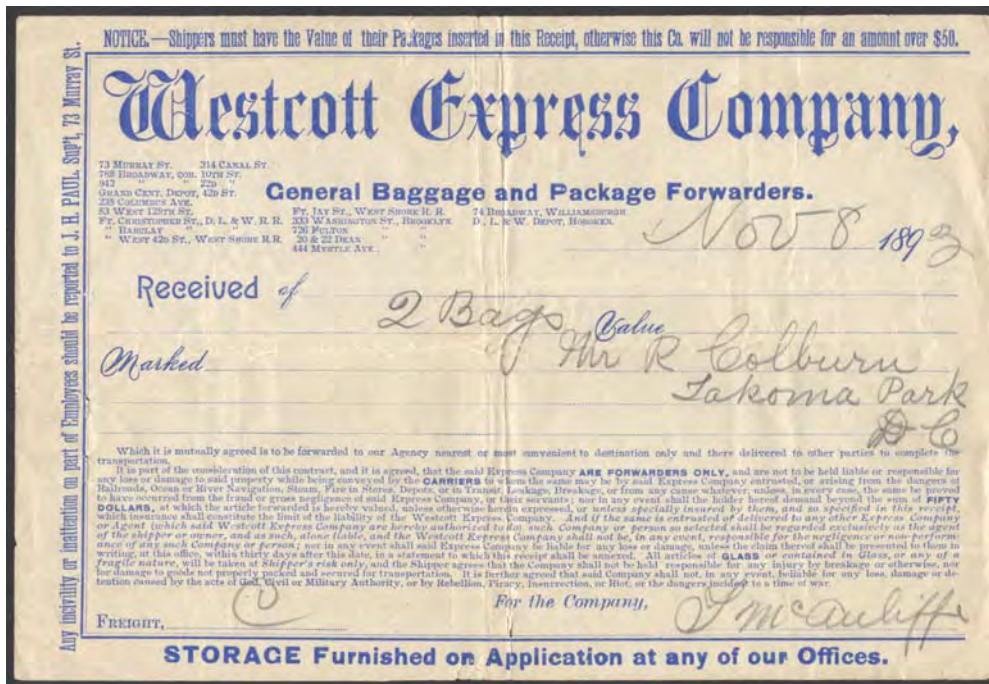 NOTICE.—Shippers must have the Value of their Packages inserted in this Receipt, otherwise this Co. will not be responsible for an amount over $50.
Any incivility or inattention on part of Employees should be reported to J. H. PAUL, Sup't, 73 Murray St.
Westcott Express Company,
General Baggage and Package Forwarders.
73 MURRAY ST. 314 CANAL ST.
785 BROADWAY, COR. 10TH ST.
942 " " 22D "
GRAND CENT. DEPOT, 42D ST.
235 COLUMBUS AVE.
53 WEST 125TH ST.
FT. CHRISTOPHER ST., D. L. & W. R. R.
" BARCLAY " "
" WEST 42D ST., WEST SHORE R.R.
FT. JAY ST., WEST SHORE R. R.
333 WASHINGTON ST., BROOKLYN.
726 FULTON " "
20 & 22 DEAN " "
444 MYRTLE AVE. "
74 BROADWAY, WILLIAMSBURGH.
D., L. & W. DEPOT, HOBOKEN.
Nov 8 1893
Received of
2 Bags Value
Marked Mr R Colburn
Takoma Park
D C
Which it is mutually agreed is to be forwarded to our Agency nearest or most convenient to destination only and there delivered to other parties to complete the
transportation.
It is part of the consideration of this contract, and it is agreed, that the said Express Company ARE FORWARDERS ONLY, and are not to be held liable or responsible for
any loss or damage to said property while being conveyed by the CARRIERS to whom the same may be by said Express Company entrusted, or arising from the dangers of
Railroads, Ocean or River Navigation, Steam, Fire in Stores, Depots, or in Transit, Leakage, Breakage, or from any cause whatever, unless, in every case, the same be proved
to have occurred from the fraud or gross negligence of said Express Company, or their servants; nor in any event shall the holder hereof demand beyond the sum of FIFTY
DOLLARS, at which the article forwarded is hereby valued, unless otherwise herein expressed, or unless specially insured by them, and so specified in this receipt,
which insurance shall constitute the limit of the liability of the Westcott Express Company. And if the same is entrusted or delivered to any other Express Company
or Agent (which said Westcott Express Company are hereby authorized to do) such Company or person so selected shall be regarded exclusively as the agent
of the shipper or owner, and as such, alone liable, and the Westcott Express Company shall not be, in any event, responsible for the negligence or non-perform-
ance of any such Company or person; nor in any event shall said Express Company be liable for any loss or damage, unless the claim therefor shall be presented to them in
writing, at this office, within thirty days after this date, in a statement to which this receipt shall be annexed. All articles of GLASS or contained in Glass, or any of a
fragile nature, will be taken at Shipper's risk only, and the Shipper agrees that the Company shall not be held responsible for any injury by breakage or otherwise, nor
for damage to goods not properly packed and secured for transportation. It is further agreed that said Company shall not, in any event, be liable for any loss, damage or de-
tention caused by the acts of God, Civil or Military Authority, or by Rebellion, Piracy, Insurrection, or Riot, or the dangers incident to a time of war.
For the Company,
FREIGHT, McAuliffe
STORAGE Furnished on Application at any of our Offices.